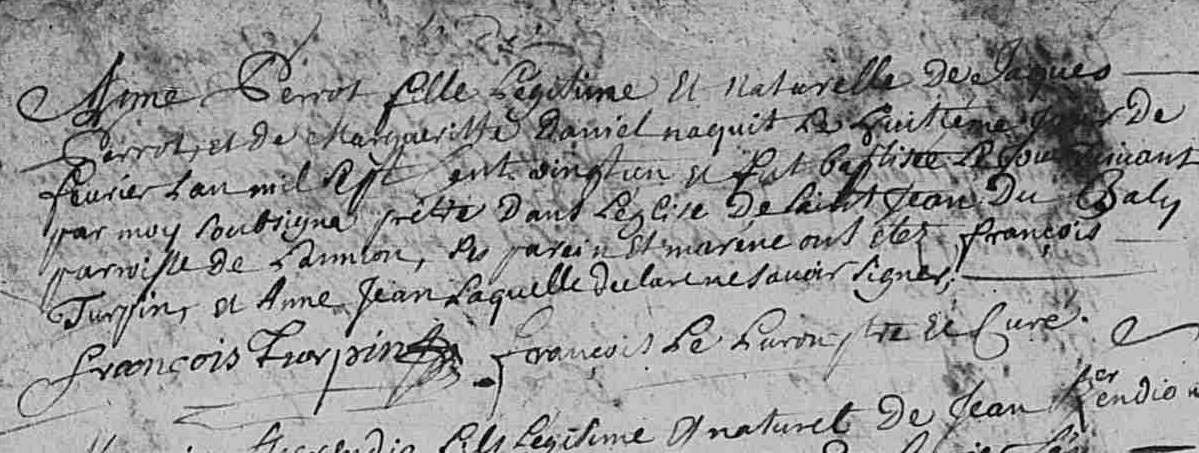 Anne Perrot fille Legitime Et naturelle De Jaques
Perrot, et de Margueritte Daniel naquit Le huitiéme Jour De
fevrier Lan mil sept cent vingt un et fut baptisée Le jour suivant
par moy soubsigné prêtre Dans L'église De Saint Jean Du Baly
parroisse de Lannion, ses parein Et marene ont étez françois
Turpin, et Anne Jean Laquelle declare ne savoir signer;
françois Turpin françois Le ptre et Curé.
fils Légitime Et naturel De Jean Kerendio